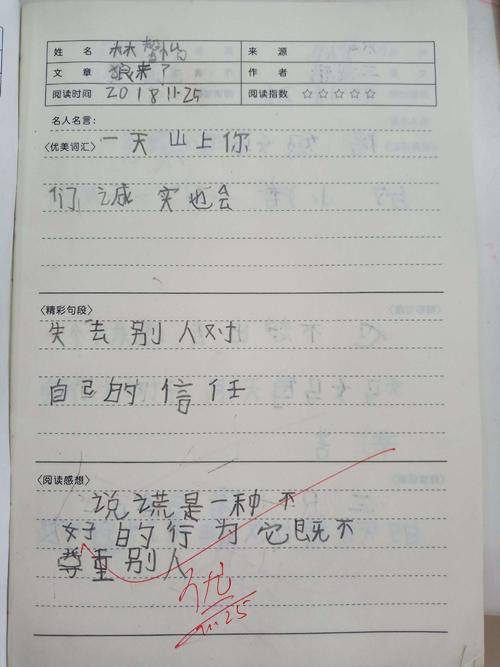 姓 名 林 来 源
文 章 狼来了 作 者
阅读时间 2018 11.25 阅读指数 ☆☆☆☆☆
名人名言：
〈优美词汇〉一天 山上 你
们 诚实 也会
〈精彩句段〉
失去别人对
自己的信任
〈阅读感想〉
说谎是一种不
好的行为它既不
尊重别人
优
11.25